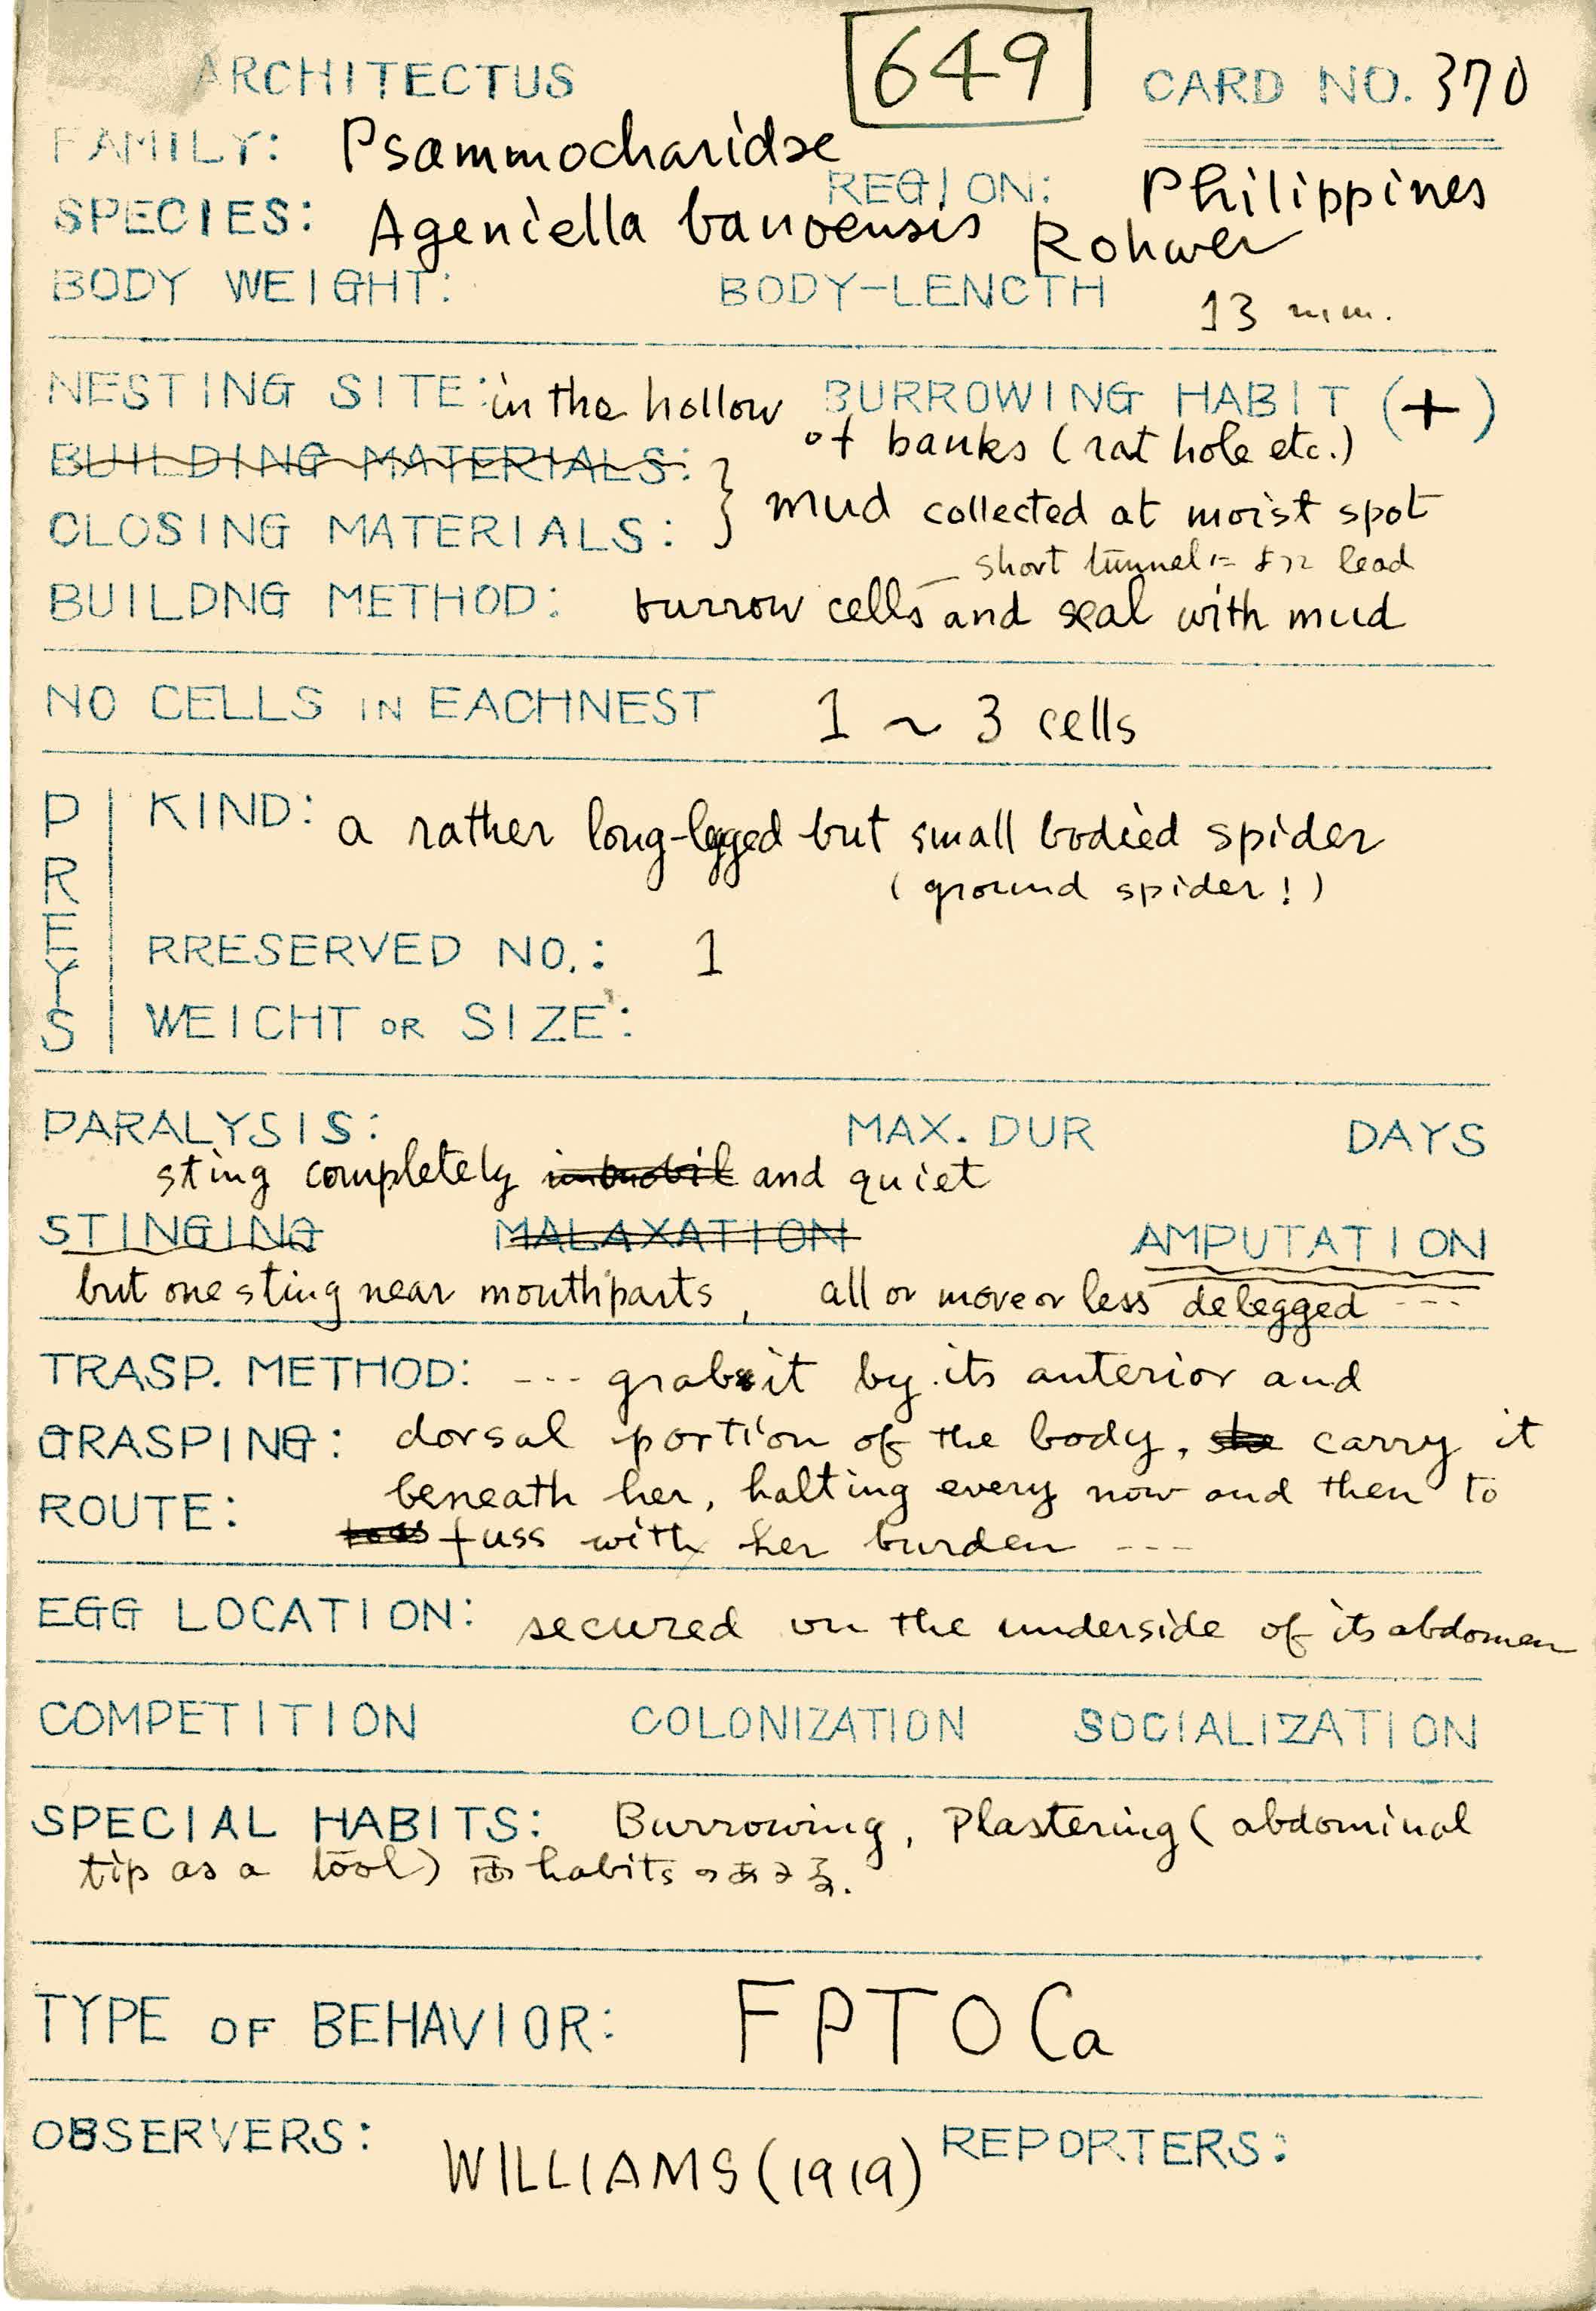 ARCHITECTUS 649 CARD NO. 370
FAMILY: Psammocharidae
REGION: Philippines
SPECIES: Ageniella Rohwer
BODY WEIGHT: BODY-LENCTH 13 mm.
NESTING SITE: in the hollow BURROWING HABIT (+)
of banks (rat hole etc.)
BUILDING MATERIALS:
CLOSING MATERIALS: } mud collected at moist spot
short tunnel lead
BUILDNG METHOD: burrow cells and seal with mud
NO CELLS IN EACHNEST 1 ~ 3 cells
PREYS
KIND: a rather long-legged but small bodied spider
(ground spider!)
RRESERVED NO.: 1
WEICHT OR SIZE:
PARALYSIS: MAX. DUR DAYS
sting completely and quiet
STINGING MALAXATION AMPUTATION
but one sting near mouthparts, all or more or less delegged ---
TRASP. METHOD: --- grabs it by its anterior and
GRASPING: dorsal portion of the body, she carry it
ROUTE: beneath her, halting every now and then to
fuss with her burden ---
EGG LOCATION: secured on the underside of its abdomen
COMPETITION COLONIZATION SOCIALIZATION
SPECIAL HABITS: Burrowing, Plastering (abdominal
tip as a tool) 両 habits
TYPE OF BEHAVIOR: FPTOCa
OBSERVERS: WILLIAMS (1919) REPORTERS: